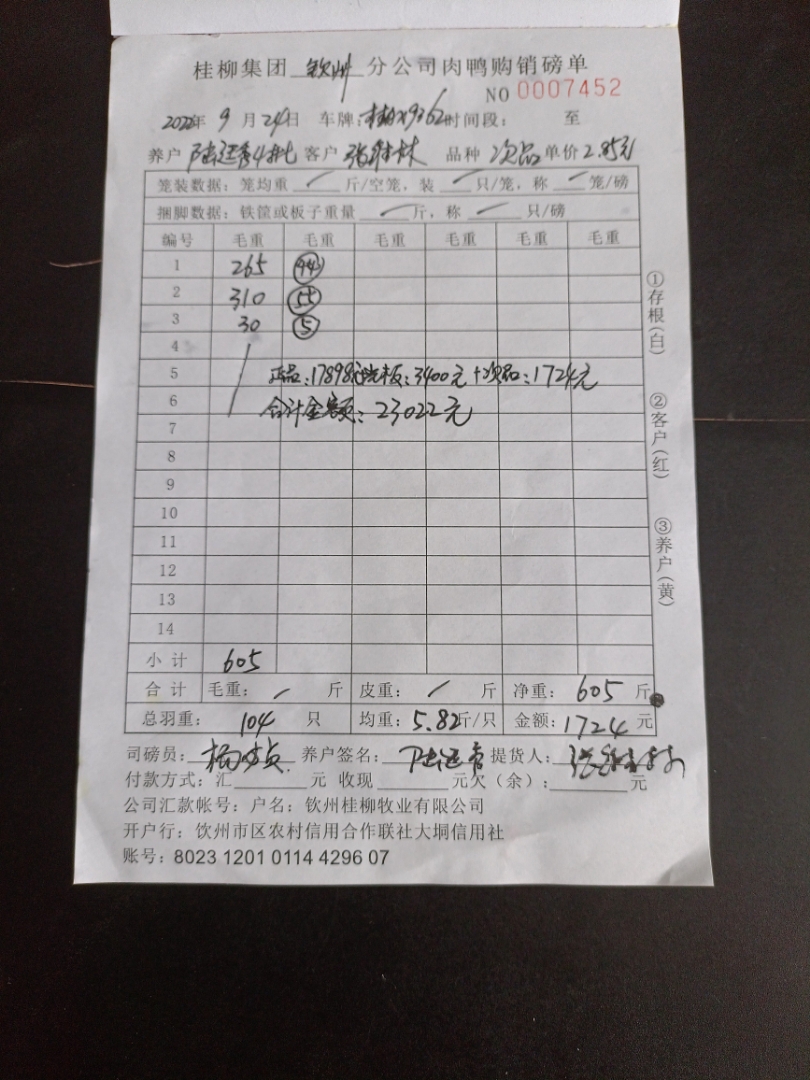 桂柳集团 钦州 分公司肉鸭购销磅单
NO 0007452
2022年 9 月 24日 车牌: 时间段: 至
养户 4批 客户 张 林 品种 次品 单价 2.85元
笼装数据: 笼均重 / 斤/空笼, 装 / 只/笼, 称 / 笼/磅
捆脚数据: 铁筐或板子重量 / 斤, 称 / 只/磅
编号 毛重 毛重 毛重 毛重 毛重 毛重
1 265 44
2 310 55
3 30 5
4
5 正品:17898元 板:3400元+次品:1724元
6 合计金额:23022元
7
8
9
10
11
12
13
14
小计 605
合计 毛重: / 斤 皮重: / 斤 净重: 605 斤
总羽重: 104 只 均重: 5.82斤/只 金额: 1724 元
司磅员: 养户签名: 提货人:
付款方式: 汇 元 收现 元欠(余): 元
公司汇款帐号: 户名: 钦州桂柳牧业有限公司
开户行: 钦州市区农村信用合作联社大垌信用社
账号: 8023 1201 0114 4296 07
①存根(白)
②客户(红)
③养户(黄)